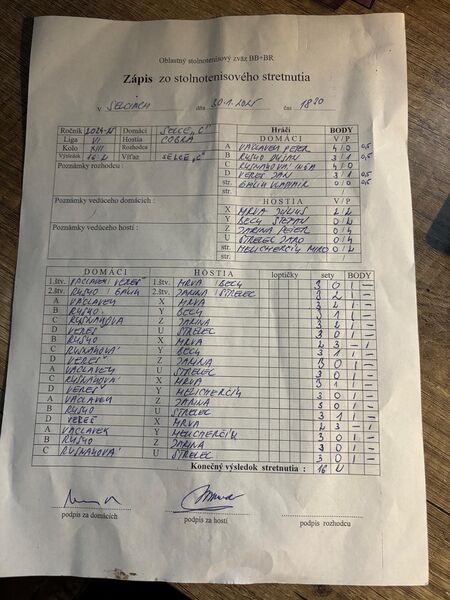 Oblastný stolnotenisový zväz BB+BR
Zápis zo stolnotenisového stretnutia
v SELCIACH dňa 30.1.2025 čas 18 30
Ročník 2024-25 Domáci SELCE "C"
Liga VI Hostia COBRA
Kolo XIII Rozhodca
Výsledok 16:2 Víťaz SELCE "C"
Poznámky rozhodcu :
Poznámky vedúceho domácich :
Poznámky vedúceho hostí :
Hráči BODY
DOMÁCI V/P
A VÁCLAVEK PETER 4/0 0,5
B RUSKO DUŠAN 3/1 0,5
C RUSNÁKOVÁ INGA 4/0
D VEREŠ JÁN 3/1 0,5
str. VLADIMÍR 0/0 0,5
str.
HOSTIA V/P
X MRVA JÚLIUS 2/2
Y BECY ŠTEFAN 0/2
Z JARINA PETER 0/4
U STRELEC JARO 0/4
str. MELICHERČÍK MIRO 0/2
str.
DOMÁCI HOSTIA loptičky sety BODY
1.štv. VÁCLAVEK VEREŠ 1.štv. MRVA BECY 3 0 1 -
2.štv. RUSKO 2.štv. JARINA STRELEC 3 2 1 -
A VÁCLAVEK X MRVA 3 2 1 -
B RUSKO Y BECY 3 1 1 -
C RUSNÁKOVÁ Z JARINA 3 1 -
D VEREŠ U STRELEC 3 0 1 -
B RUSKO X MRVA 2 3 - 1
C RUSNÁKOVÁ Y BECY 3 1 1 -
D VEREŠ Z JARINA 3 1 -
A VÁCLAVEK U STRELEC 3 0 1 -
C RUSNÁKOVÁ X MRVA 3 1 1 -
D VEREŠ Y MELICHERČÍK 3 0 1 -
A VÁCLAVEK Z JARINA 3 0 1 -
B RUSKO U STRELEC 3 1 1 -
D VEREŠ X MRVA 2 3 - 1
A VÁCLAVEK Y MELICHERČÍK 3 0 1 -
B RUSKO Z JARINA 3 0 1 -
C RUSNÁKOVÁ U STRELEC 3 0 1 -
Konečný výsledok stretnutia : 16 2
podpis za domácich podpis za hostí podpis rozhodcu